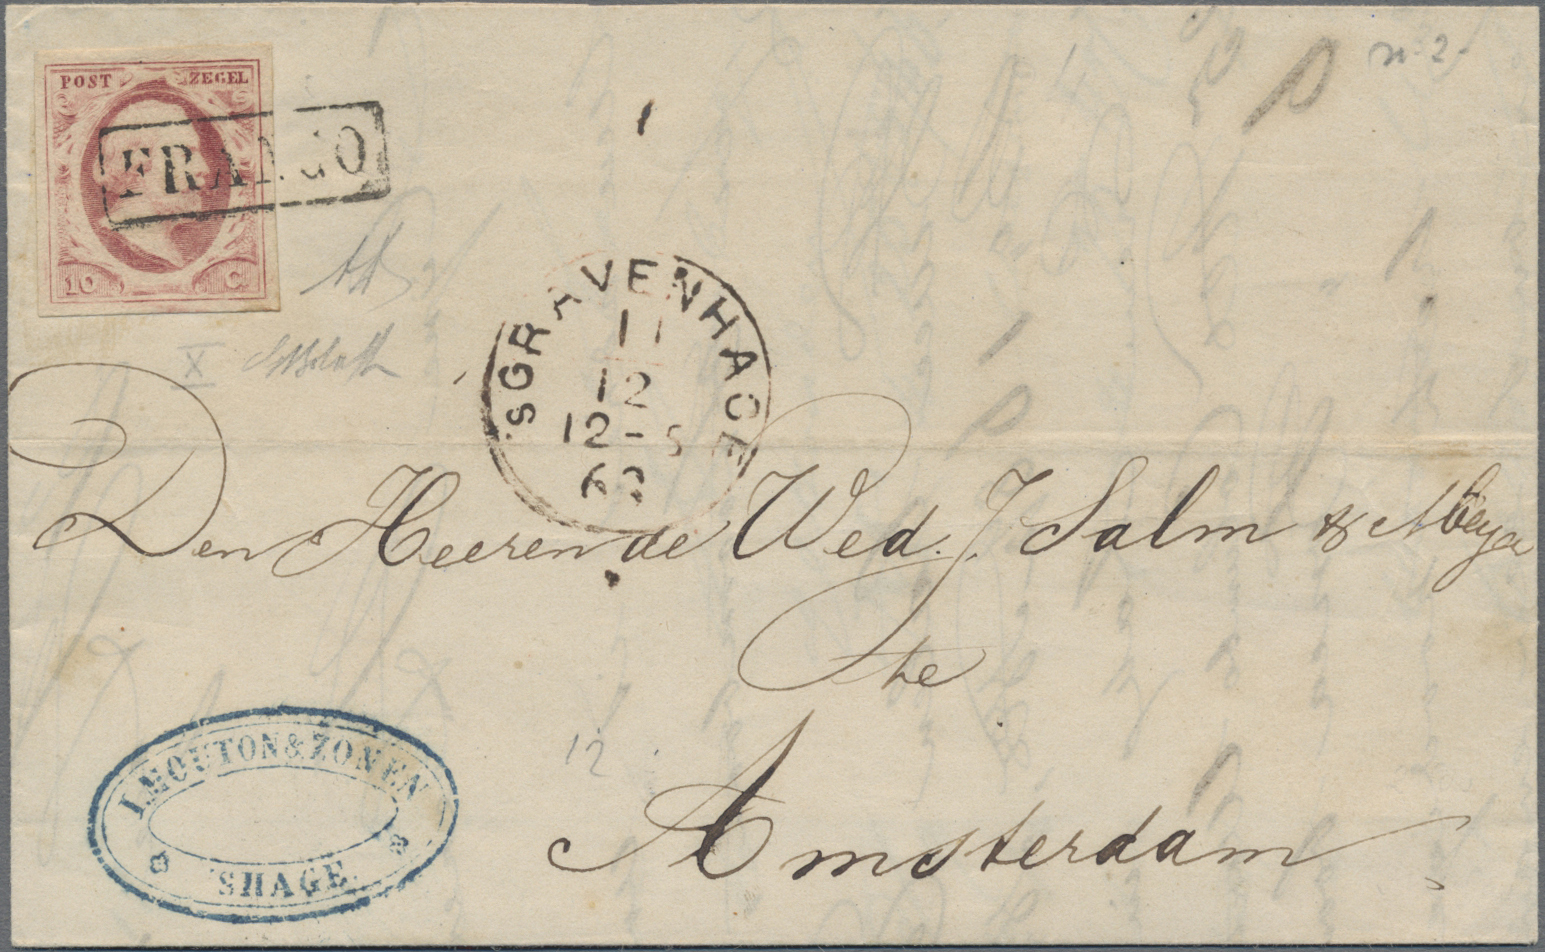 POST ZEGEL
FRANCO
10 C.
n. 2
'SGRAVENHAGE
11
12
12-5
62
X
Den Heeren de Wed. J. Salm & Meyer
te
Amsterdam
12
I. MOUTON & ZONEN
'SHAGE